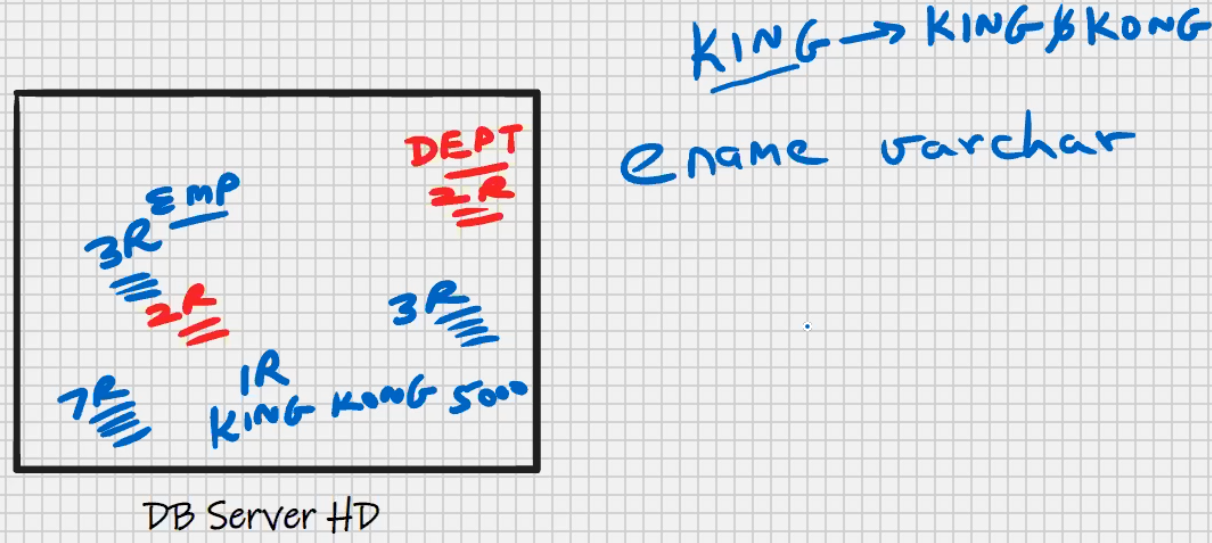 KING → KING KONG
ename varchar
DEPT
2R
EMP
3R
2R
3R
1R
7R
KING KONG 5000
DB Server HD